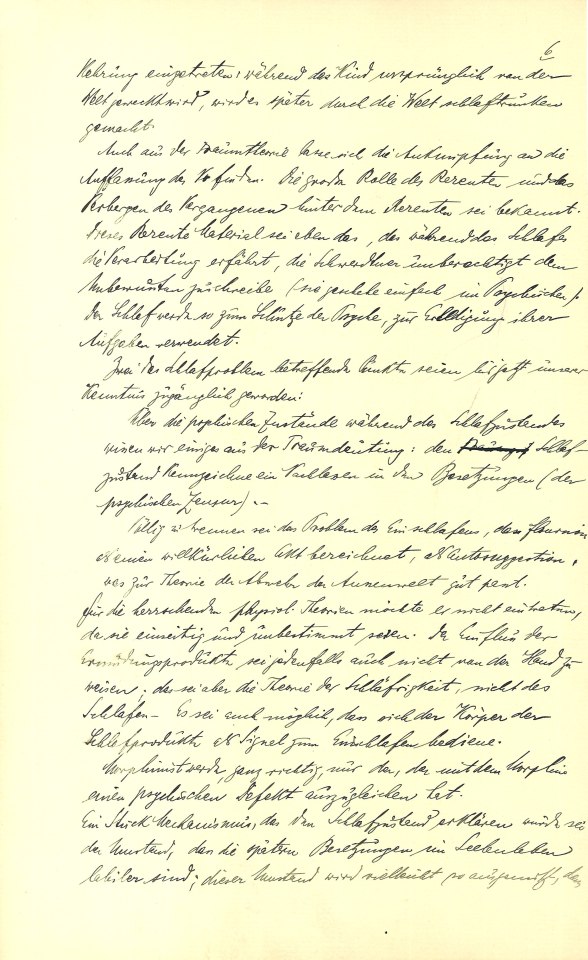 6
Kehrung eingetreten: während das Kind ursprünglich von der
Welt geweckt wird, wird es später durch die Welt schlaftrunken
gemacht.
Auch aus der Traumtheorie lasse sich die Anknüpfung an die
Auffassung des finden. Die große Rolle des Rezenten und des
Verbergen des Vergangenen hinter dem Rezenten sei bekannt.
Dieses Rezente Material sei eben das, das während des Schlafes
die Verarbeitung erfährt, die Schwerdtner unberechtigt dem
Unbewußten zuschreibe (sie geschehe einfach im Psychischen).
Der Schlaf werde so zum Schutze der Psyche, zur Erledigung ihrer
Aufgaben verwendet.
Zwei das Schlafproblem betreffende Punkte seien bis jetzt unserer
Kenntnis zugänglich geworden:
Über die psychischen Zustände während des Schlafzustandes
wissen wir einiges aus der Traumdeutung: den Schlaf-
zustand kennzeichne ein Nachlassen in den Besetzungen (der
psychischen Zensur). –
Völlig zu trennen sei das Problem des Einschlafens, das
als einen willkürlichen Akt bezeichnet, als Autosuggestion,
was zur Theorie der Abwehr der Aussenwelt gut passt.
Für die herrschenden physiol. Theorien möchte er nicht eintreten,
da sie einseitig und unbestimmt seien. Der Einfluß der
Ermüdungsprodukte sei jedenfalls auch nicht von der Hand zu
weisen; das sei aber die Theorie der Schläfrigkeit, nicht des
Schlafens – Es sei auch möglich, dass sich der Körper der
Schlafprodukte als Signal zum Einschlafen bediene.
Morphinist werde, ganz richtig, nur der, der mit dem Morphin
einen psychischen Defekt auszugleichen hat.
Ein Stück Mechanismus, das den Schlafzustand erklären würde sei
der Umstand, dass die spätern Besetzungen im Seelenleben
labiler sind; dieser Umstand wird vielleicht so ausgenützt, dass